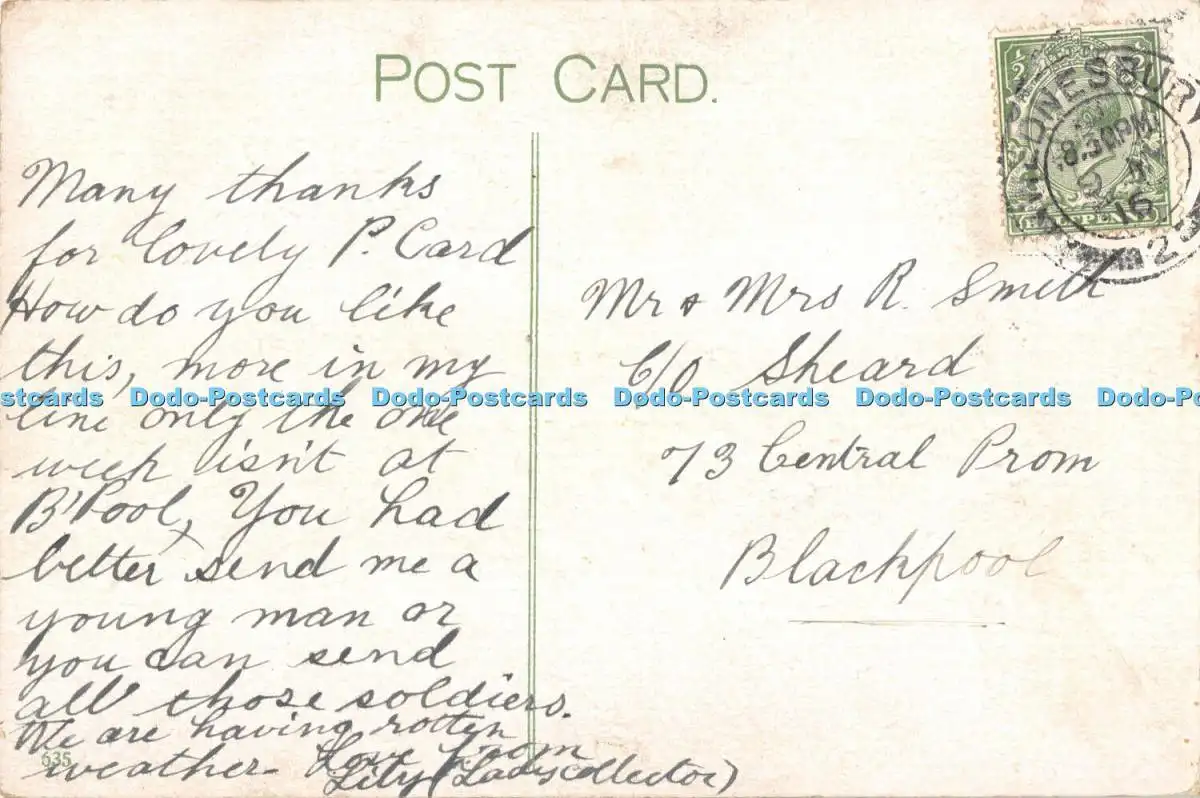 POST CARD.
WEDNESBURY
8.30PM
16
HALFPENNY
Many thanks
for lovely P. Card
How do you like
this, more in my
line only the one
week isn't at
B'Pool, You had
better send me a
young man or
you can send
all those soldiers.
We are having rotten
weather. Love from
Lily (Ladys collector)
535
Mr & Mrs R. Smith
C/O Sheard
73 Central Prom
Blackpool
Dodo-Postcards Dodo-Postcards Dodo-Postcards Dodo-Postcards